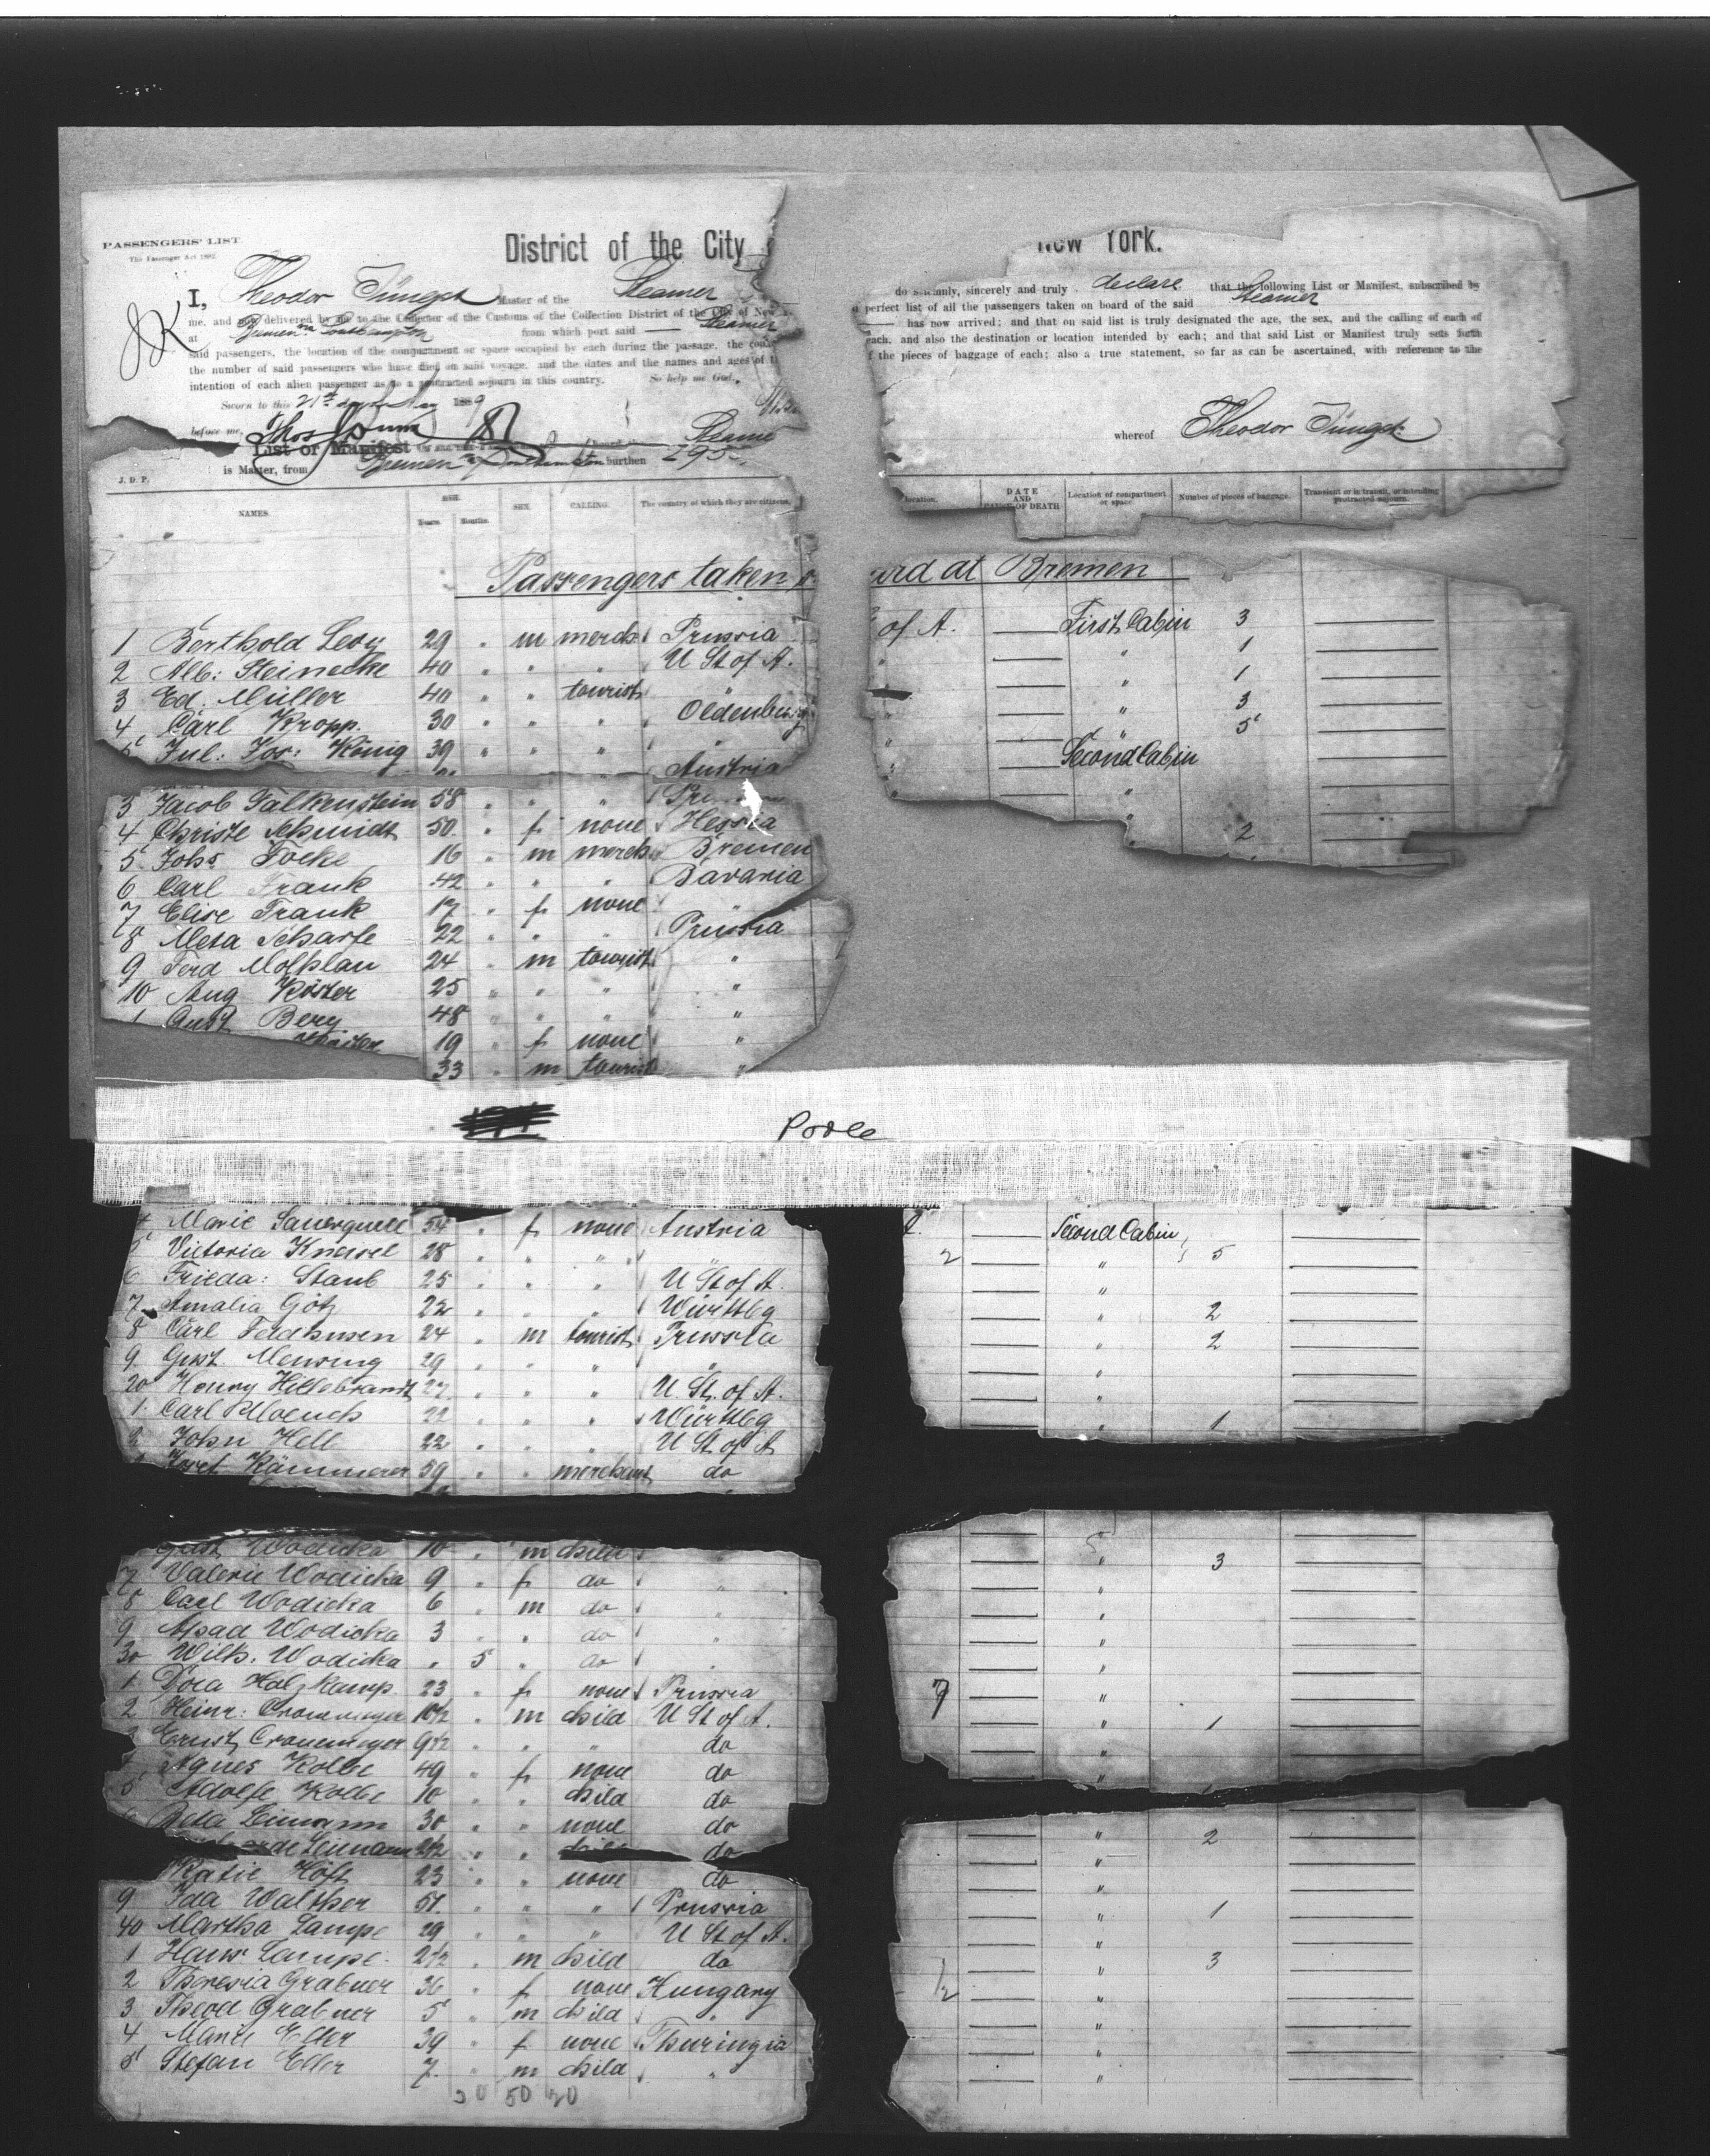 PASSENGERS' LIST.
The Passenger Act 1882.
District of the City New York.
I, Theodor Jüngst Master of the Steamer do solemnly, sincerely and truly declare that the following List or Manifest, subscribed by
me, and delivered by me to the Collector of the Customs of the Collection District of the City of New perfect list of all the passengers taken on board of the said Steamer
at Bremen via Southampton from which port said Steamer has now arrived; and that on said list is truly designated the age, the sex, and the calling of each of
said passengers, the location of the compartment or space occupied by each during the passage, the each, and also the destination or location intended by each; and that said List or Manifest truly sets forth
the number of said passengers who have died on said voyage, and the dates and the names and ages of the pieces of baggage of each; also a true statement, so far as can be ascertained, with reference to the
intention of each alien passenger as to a protracted sojourn in this country. So help me God.
Sworn to this 21st day of May 1889
before me, Thos Dunn
whereof Theodor Jüngst
List or Manifest Steame
is Master, from Bremen Southampton burthen 295
J. D. P.
NAMES. AGE. Years. Months. SEX. CALLING. The country of which they are citizens. location. DATE AND CAUSE OF DEATH Location of compartment or space. Number of pieces of baggage. Transient or in transit, or intending protracted sojourn.
Passengers taken ard at Bremen
1 Berthold Levy 29 " m merch Prussia of A. First Cabin 3
2 Alb: Steinecke 40 " " " U St of A. " " 1
3 Ed. Müller 40 " " tourist " " 1
4 Carl Kropp. 30 " " " Oldenburg " 3
5 Jul: Jos: König 39 " " " " " 5
Austria Second Cabin
3 Jacob Falkenstein 58 " " "
4 Christe Schmidt 50 " f none Hessia 2
5 Johs Focke 16 " m merch Bremen
6 Carl Frank 42 " " " Bavaria
7 Elise Frank 17 " f none "
8 Meta Scharfe 22 " " " Prussia
9 Ferd Molthlau 24 " m tourist "
10 Aug Köster 25 " " " "
1 Gust Berg 48 " " " "
19 " f none "
33 " m tourist "
Poole
4 Marie Sauerquell 54 " f none Austria Second Cabin
5 Victoria Knessel 28 " " " " 2 " 5
6 Frieda: Staub 25 " " " U St of A. "
7 Amalia Götz 22 " " " Württbg " 2
8 Carl Feldhusen 24 " m tourist Prussia " 2
9 Gust. Mensing 29 " " " " "
20 Henry Hillebrandt 27 " " " U St. of A. "
1 Carl Ploench 22 " " " Württbg " 1
2 John Hell 22 " " " U St of A
3 Josef Kämmerer 59 " " merchant do
Gust Wodicka 10 " m child " 3
7 Valerie Wodicka 9 " f do " "
8 Carl Wodicka 6 " m do " "
9 Arpad Wodicka 3 " " do " "
30 Wilh: Wodicka " 5 " do " "
1 Dora Holzkamp 23 " f none Prussia "
2 Heinr: Cronemeyer 10½ " m child U St of A. " 1
3 Ernst Cronemeyer 9½ " " " do "
4 Agnes Kolbe 49 " f none do "
5 Adolfe Kolbe 10 " " child do
6 Beta Leimann 30 " " none do " 2
Leimann 2½ " " child do "
Katie Höft 23 " " none do "
9 Ida Walther 51. " " " Prussia " 1
40 Martha Lampe 29 " " " U St of A. "
1 Hans Lampe. 2½ " m child do " 3
2 Theresia Grabner 36 " f none Hungary "
3 Theod Grabner 5 " m child " "
4 Marie Eller 39 " f none Thuringia "
5 Stefan Eller 7. " m child " "
30 50 20